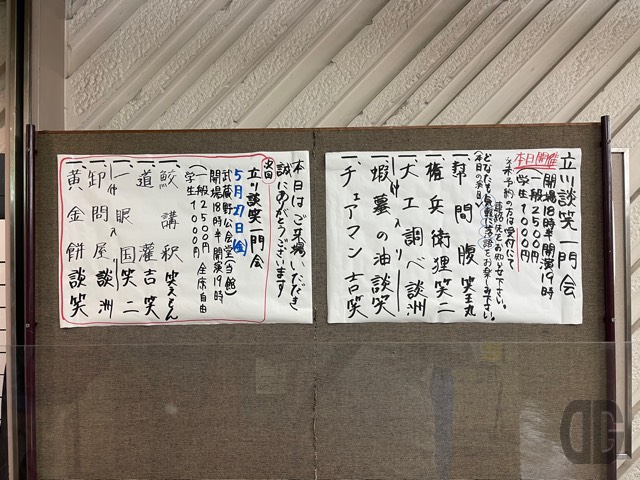 立川談笑一門会
本日開催
開場18時半 開演19時
一般2500円
学生1000円
※予約の方は受付にて
連絡先をお知らせ下さい。
どなたも気軽に落語をお楽しみ下さい。
(本日の演目)
一、幇間腹 笑王丸
一、権兵衛狸 笑二
一、大工調べ 談洲
-仲入り-
一、蝦蟇の油 談笑
一、チェアマン 吉笑
本日はご来場いただき
誠にありがとうございます
次回
立川談笑一門会
5月27日(金)
武蔵野公会堂(当館)
開場18時半 開演19時
(一般2500円 全席自由
学生1000円
一、鮫講釈 笑えもん
一、道灌 吉笑
一、一眼国 笑二
-仲入-
一、卸問屋 談洲
一、黄金餅 談笑
DG